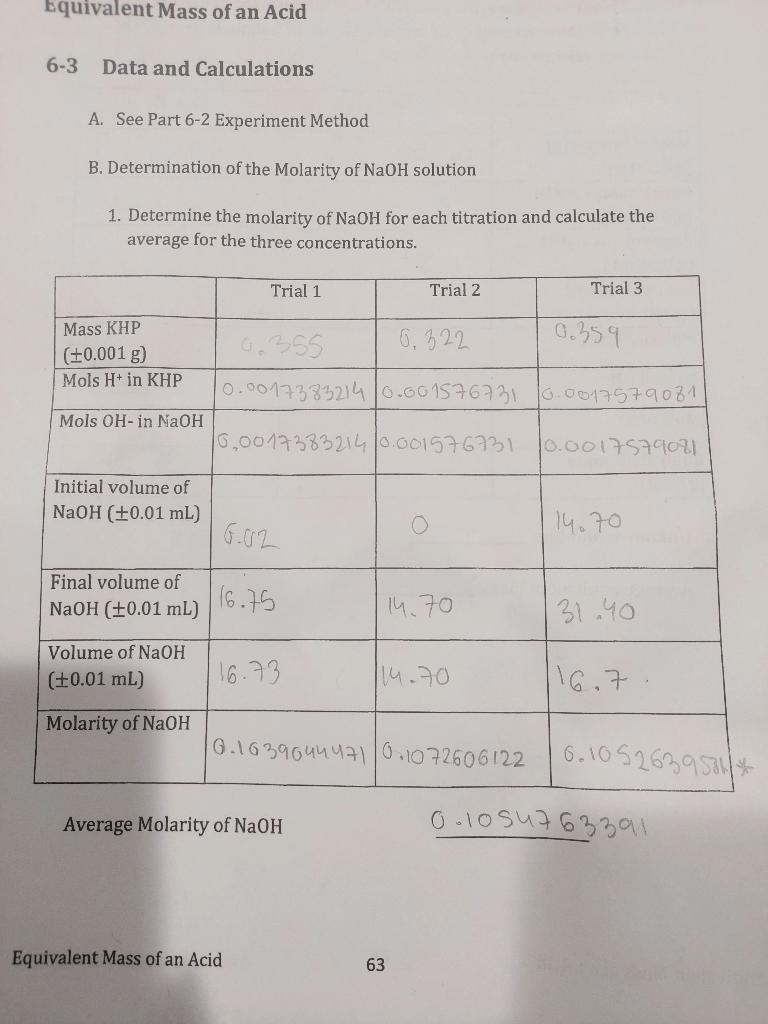 Equivalent Mass of an Acid
6-3 Data and Calculations
A. See Part 6-2 Experiment Method
B. Determination of the Molarity of NaOH solution
1. Determine the molarity of NaOH for each titration and calculate the
average for the three concentrations.
Trial 1 Trial 2 Trial 3
Mass KHP
(±0.001 g) 0.355 0.322 0.359
Mols H⁺ in KHP 0.0017383214 0.001576731 0.0017579081
Mols OH- in NaOH 0.0017383214 0.001576731 0.0017579081
Initial volume of
NaOH (±0.01 mL) 0.02 0 14.70
Final volume of
NaOH (±0.01 mL) 16.75 14.70 31.40
Volume of NaOH
(±0.01 mL) 16.73 14.70 16.7
Molarity of NaOH 0.1039044471 0.1072606122 *
Average Molarity of NaOH 0.1054763391
Equivalent Mass of an Acid 63